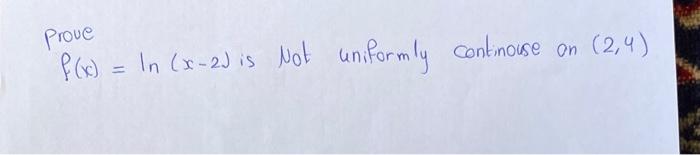 Prove
f(x) = ln (x-2) is Not uniformly continouse on (2,4)